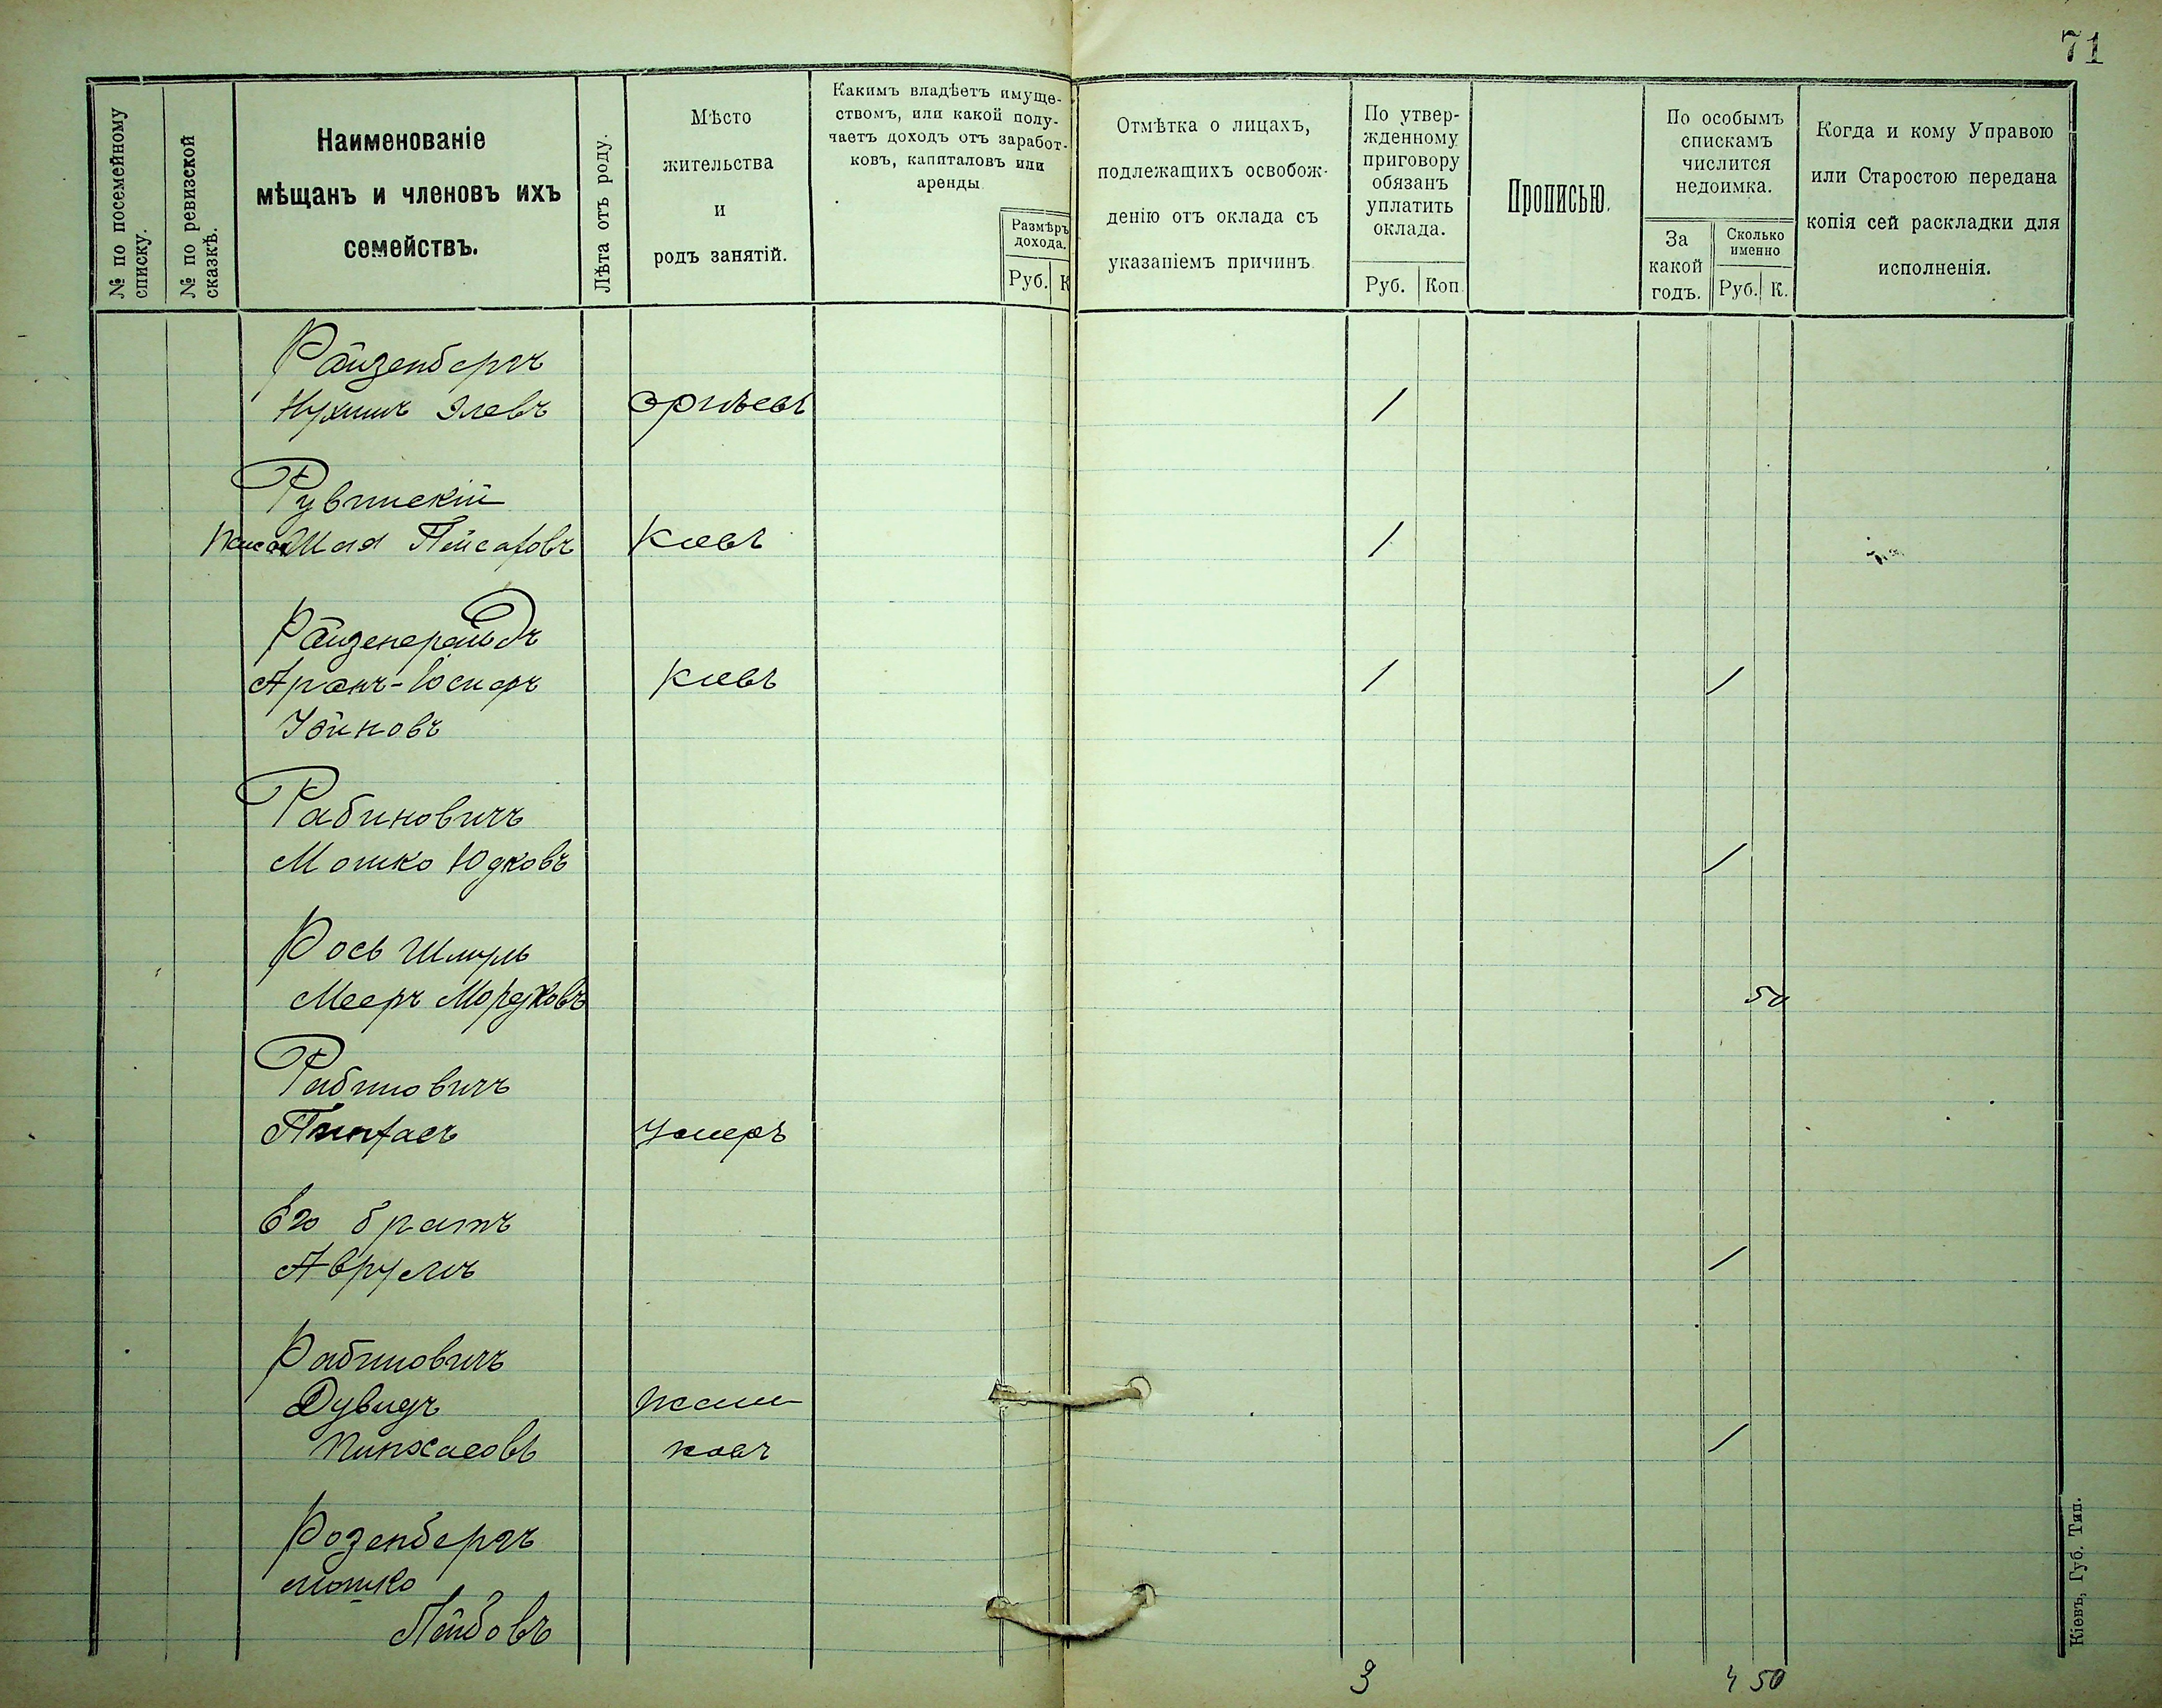 71
№ по посемейному
списку.
№ по ревизской
сказкѣ.
Наименованіе
мѣщанъ и членовъ ихъ
семействъ.
Лѣта отъ роду.
Мѣсто
жительства
и
родъ занятій.
Какимъ владѣетъ имуще-
ствомъ, или какой полу-
чаетъ доходъ отъ заработ-
ковъ, капиталовъ или
аренды
Размѣръ
дохода.
Руб. К
Отмѣтка о лицахъ,
подлежащихъ освобож-
денію отъ оклада съ
указаніемъ причинъ
По утвер-
жденному
приговору
обязанъ
уплатить
оклада.
Руб. Коп.
Прописью.
По особымъ
спискамъ
числится
недоимка.
За
какой
годъ.
Сколько
именно
Руб. К.
Когда и кому Управою
или Старостою передана
копія сей раскладки для
исполненія.
Райзенбергъ
Нухимъ Элевъ 1
Рувинскій
Шая Пейсаховъ Кіевъ 1
Аронъ-Іосифъ Кіевъ 1 1
Рабиновичъ
Мошко Юдковъ 1
Рось Шмуль
Мееръ Мордковъ 50
Рабиновичъ
Пинхасъ Умеръ
Его братъ
Аврумъ 1
Рабиновичъ
Дувидъ
Пинхасовъ 1
Розенбергъ
Мошко
Лейбовъ
3 4 50
Кіевъ, Губ. Тип.